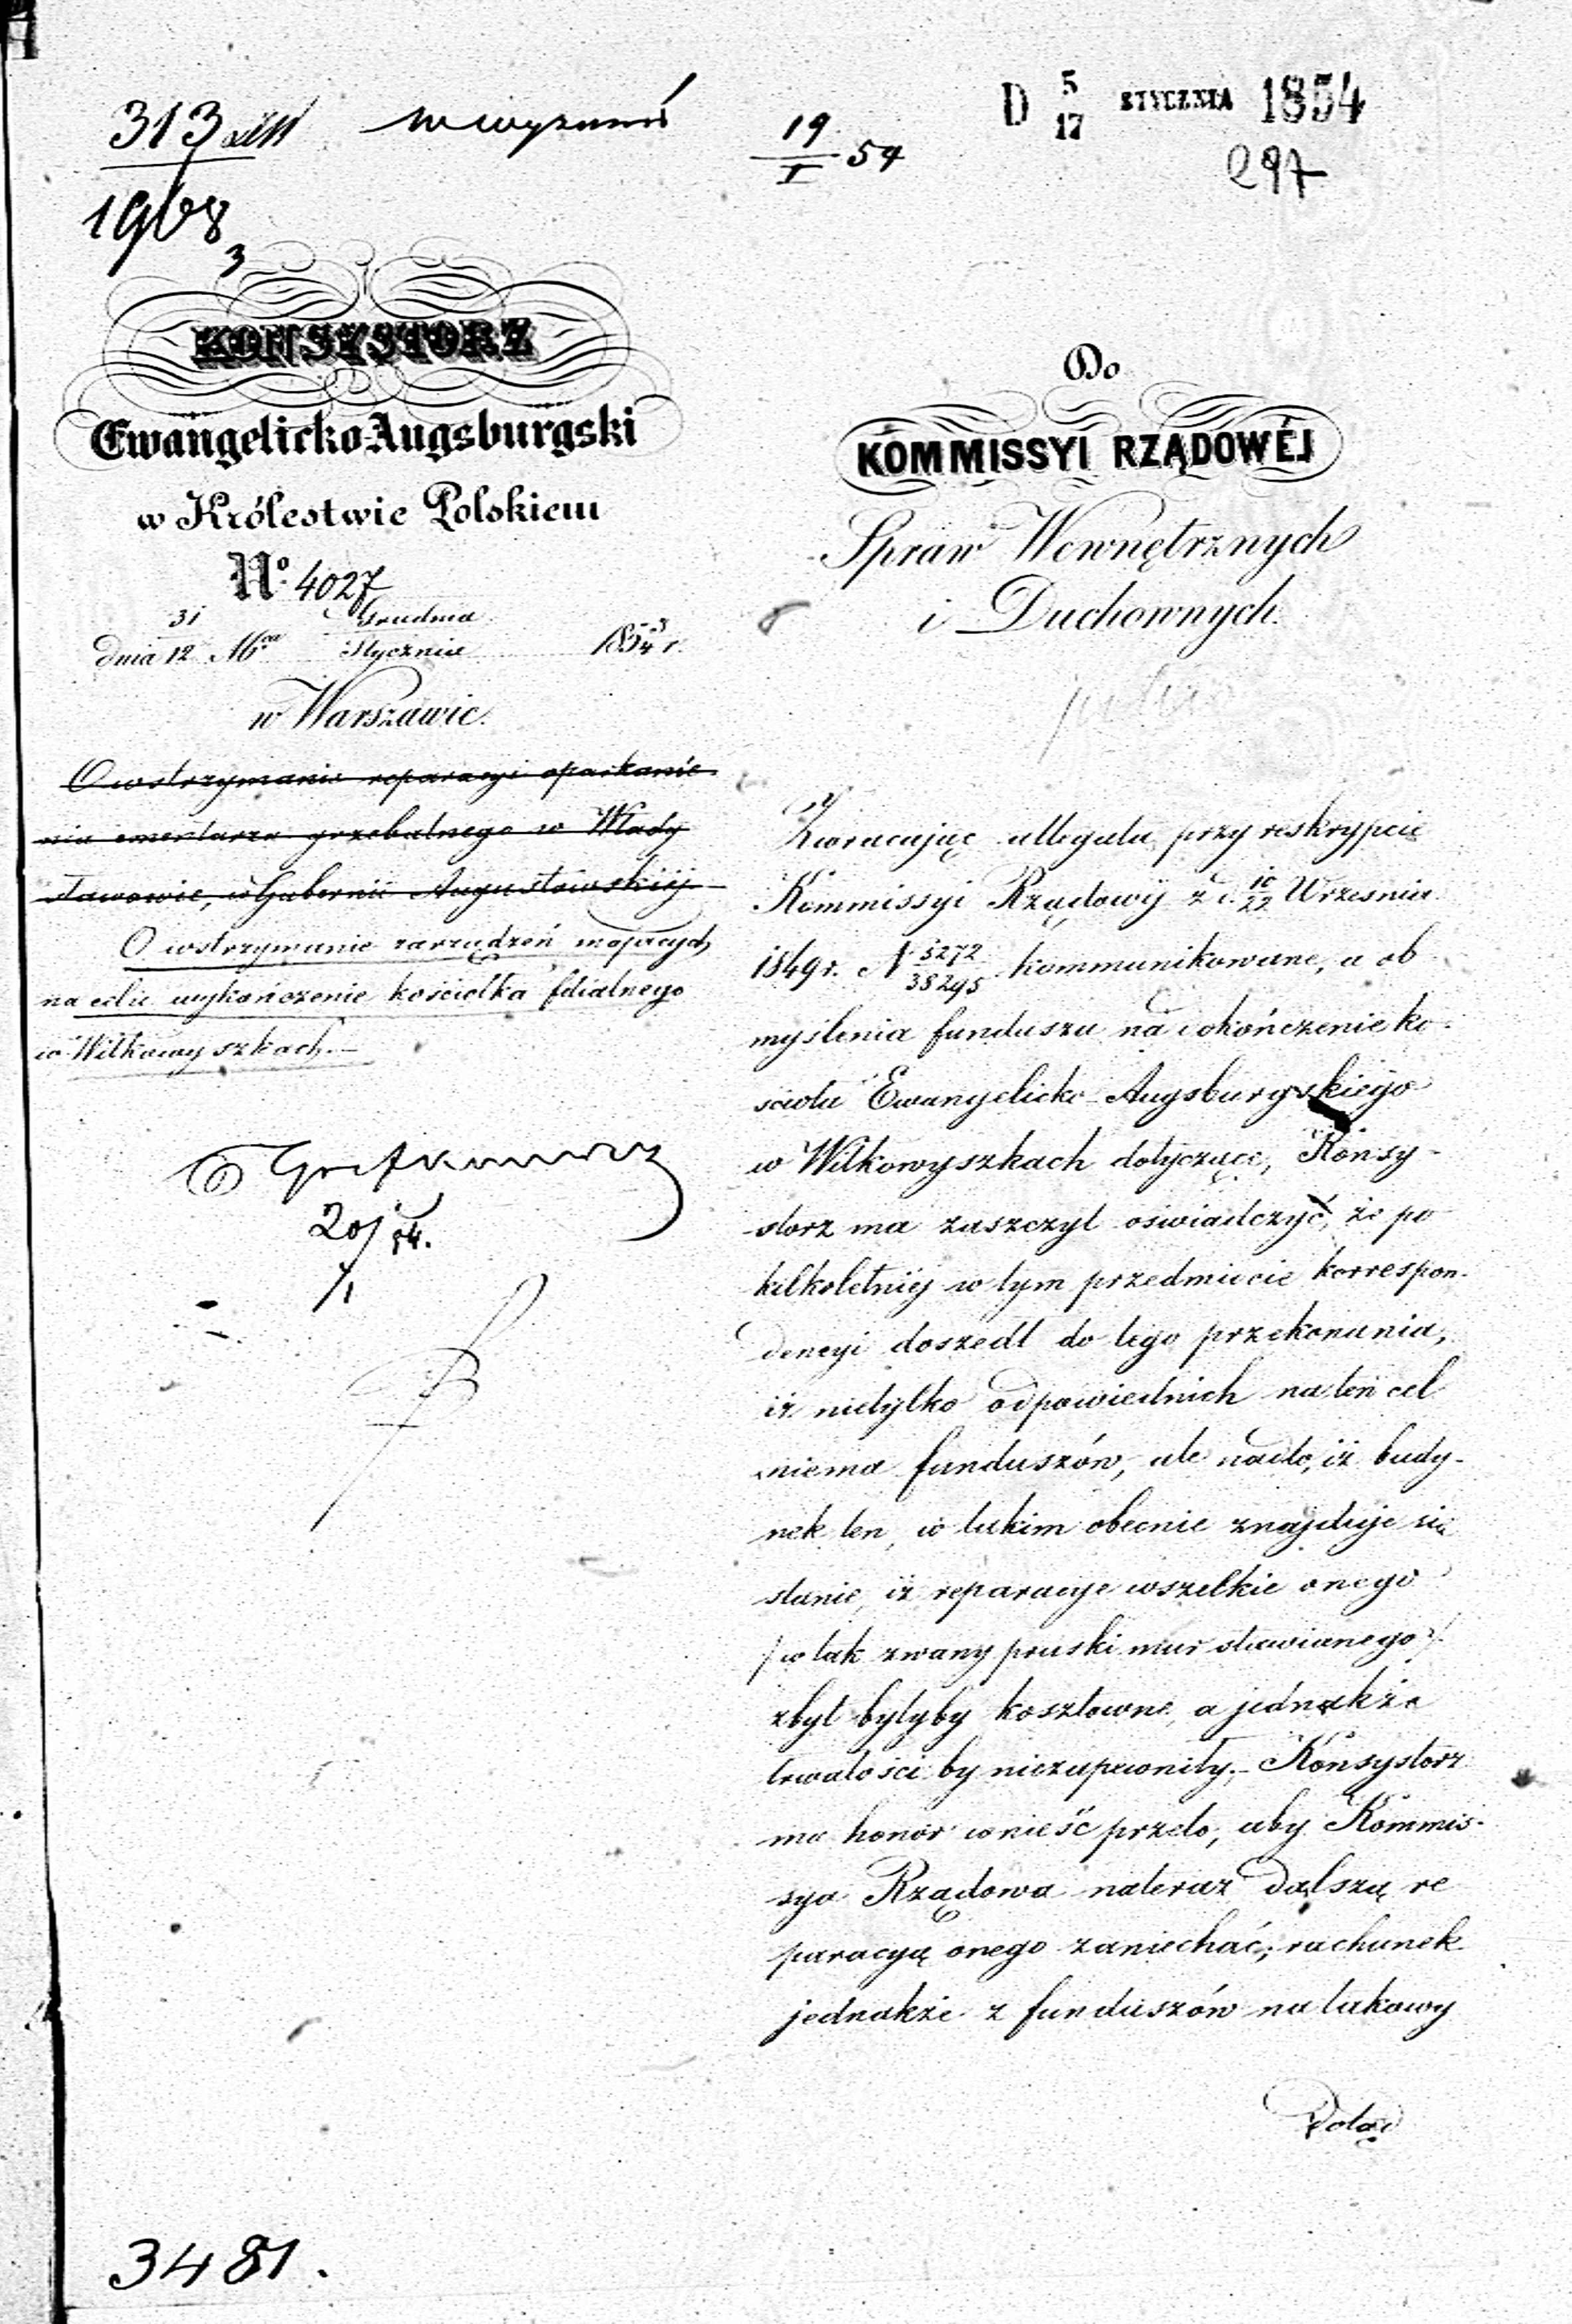 313
1968
3
19/I 54
D 5/17 STYCZNIA 1854
297
KONSYSTORZ
Ewangelicko-Augsburgski
w Królestwie Polskiem
No. 4027
dnia 31/12 Mca Grudnia/Stycznia 185 3/4 r.
w Warszawie.
O wstrzymanie reparacyi oparkanie
nia cmentarza grzebalnego w Włady
sławowie, w Gubernii Augustowskiéj
O wstrzymanie zarządzeń mających
na celu wykończenie kościołka filialnego
w Wiłkowyszkach.-
20/54.
/1
Do
KOMMISSYI RZĄDOWÉJ
Spraw Wewnętrznych
i Duchownych.
Zwracając allegata, przy reskrypcie
Kommissyi Rządowéj z d. 10/22 Września
1849 r. N 5272/38295 kommunikowane, a ob
myślenia funduszu na dokończenie ko-
ścioła Ewangelicko-Augsburgskiego
w Wiłkowyszkach dotyczące, Konsy-
storz ma zaszczyt oświadczyć, że po
kilkoletniéj w tym przedmiocie korrespon-
dencyi doszedł do tego przekonania,
iż nietylko odpowiednich na ten cel
niema funduszów, ale nadto, iż budy-
nek ten, w takim obecnie znajduje się
stanie, iż reparacye wszelkie onego
/w tak zwany pruski mur stawianego/
zbyt byłyby kosztowne, a jednakże
trwałości by niezapewniły.- Konsystorz
ma honor wnieść przeto, aby Kommis-
sya Rządowa nateraz dalszą re
paracyą onego zaniechać; rachunek
jednakże z funduszów na takowy
3481.